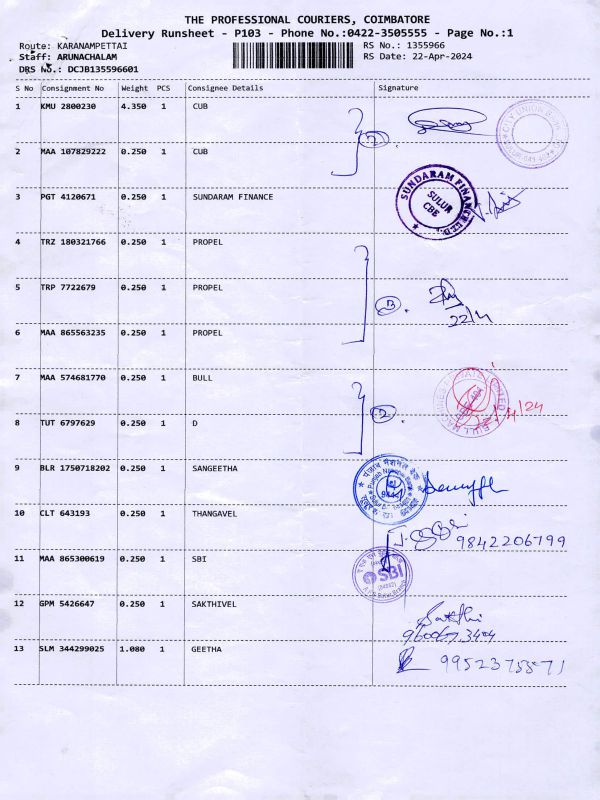 THE PROFESSIONAL COURIERS, COIMBATORE
Delivery Runsheet - P103 - Phone No.:0422-3505555 - Page No.:1
Route: KARANAMPETTAI RS No.: 1355966
Staff: ARUNACHALAM RS Date: 22-Apr-2024
DRS No.: DCJB135596601
S No Consignment No Weight PCS Consignee Details Signature
1 KMU 2800230 4.350 1 CUB
2 MAA 107829222 0.250 1 CUB
CITY UNION BANK
3 PGT 4120671 0.250 1 SUNDARAM FINANCE
SUNDARAM FINANCE LTD
SULUR
CBE
4 TRZ 180321766 0.250 1 PROPEL
5 TRP 7722679 0.250 1 PROPEL
22/4
6 MAA 865563235 0.250 1 PROPEL
7 MAA 574681770 0.250 1 BULL
8 TUT 6797629 0.250 1 D
2
9 BLR 1750718202 0.250 1 SANGEETHA
10 CLT 643193 0.250 1 THANGAVEL
9842206799
11 MAA 865300619 0.250 1 SBI
SBI
12 GPM 5426647 0.250 1 SAKTHIVEL
Sakthi
13 SLM 344299025 1.080 1 GEETHA
9952375571